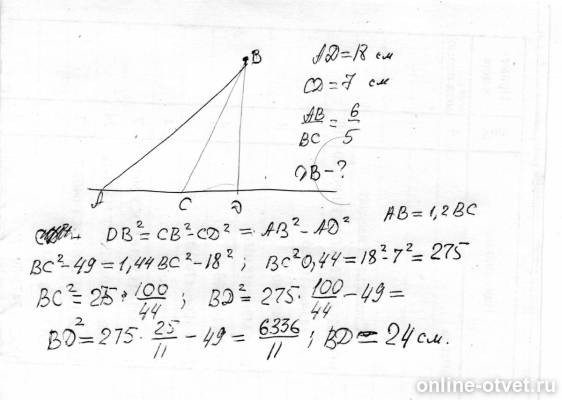 B
AD=18 см
CD=7 см
AB/BC = 6/5
DB-?
A C D
AB=1,2BC
DB²=CB²-CD² = AB²-AD²
BC²-49=1,44BC²-18²; BC²0,44=18²-7²=275
BC²=275·100/44; BD²=275·100/44-49=
BD²=275·25/11-49=6336/11; BD=24см.
online-otvet.ru